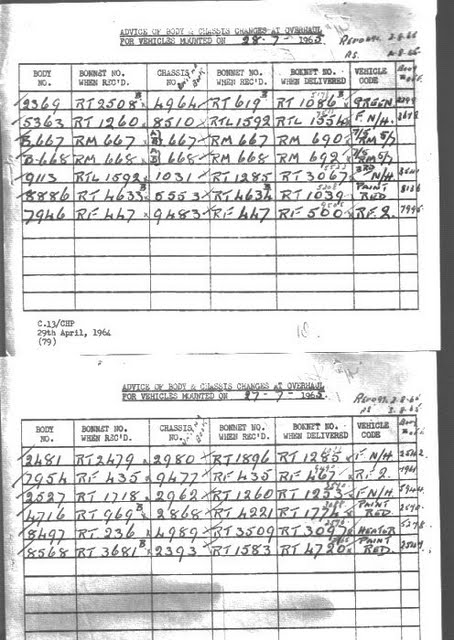 ADVICE OF BODY & CHASSIS CHANGES AT OVERHAUL
FOR VEHICLES MOUNTED ON 28-7-1965
BODY NO. BONNET NO. WHEN REC'D. CHASSIS NO. BONNET NO. WHEN REC'D. BONNET NO. WHEN DELIVERED VEHICLE CODE
2369 RT 2508 B 4964 RT 619 B RT 1086 B GREEN
5363 RT 1260 8510 RTL 1592 RTL 1554 F. N/H.
B.667 RM 667 B 667 RM 667 RM 690 7/5 RM 5/7
B.668 RM 668 B 668 RM 668 RM 692 7/5 RM 5/7
9113 RTL 1592 1031 RT 1285 RT 3067 3RD N/H
8886 RT 4633 B 5553 RT 4634 B RT 1039 PAINT RED 8126
7946 RF 447 9483 RF 447 RF 500 RF. 2. 7995
C.13/CHP
29th April, 1964
(79)
ADVICE OF BODY & CHASSIS CHANGES AT OVERHAUL
FOR VEHICLES MOUNTED ON 27-7-1965
BODY NO. BONNET NO. WHEN REC'D. CHASSIS NO. BONNET NO. WHEN REC'D. BONNET NO. WHEN DELIVERED VEHICLE CODE
2481 RT 2479 2980 RT 1896 RT 1285 F N/H.
7954 RF 435 9477 RF 435 RF 467 RF. 2.
2527 RT 1718 2962 RT 1260 RT 1253 F N/H.
4716 RT 969 B 2868 RT 4221 RT 1774 PAINT RED
8497 RT 236 4989 RT 3509 RT 3097 HEATER 5278
8568 RT 3681 B 2393 RT 1583 RT 4720 PAINT RED